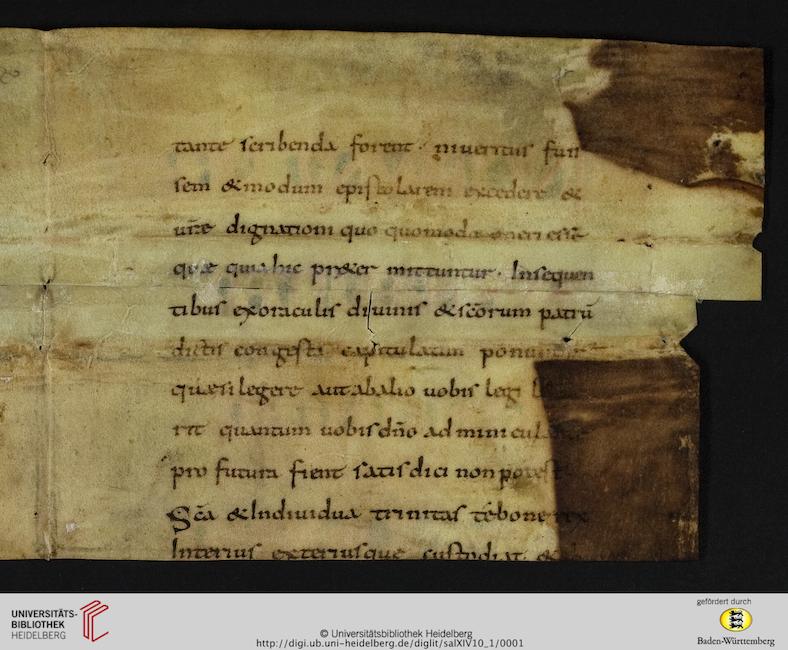 tante scribenda forent · inveritus fuis
sem & modum epistolarem excedere &
ur̄ae dignationi quo quomodo oneri esse
quae quia hic praeter mittuntur · Insequen
tibus ex oraculis divinis & sc̄orum patrū
dictis congesti capitulatim
quae si legere aut ab alio vobis legi
rit quantum vobis dn̄o adminicul
pro futura fient satis dici non potest
Sc̄a & individua trinitas te bone rex
Interius exteriusque custodiat
UNIVERSITÄTS-
BIBLIOTHEK
HEIDELBERG
© Universitätsbibliothek Heidelberg
http://digi.ub.uni-heidelberg.de/diglit/salXIV10_1/0001
gefördert durch
Baden-Württemberg